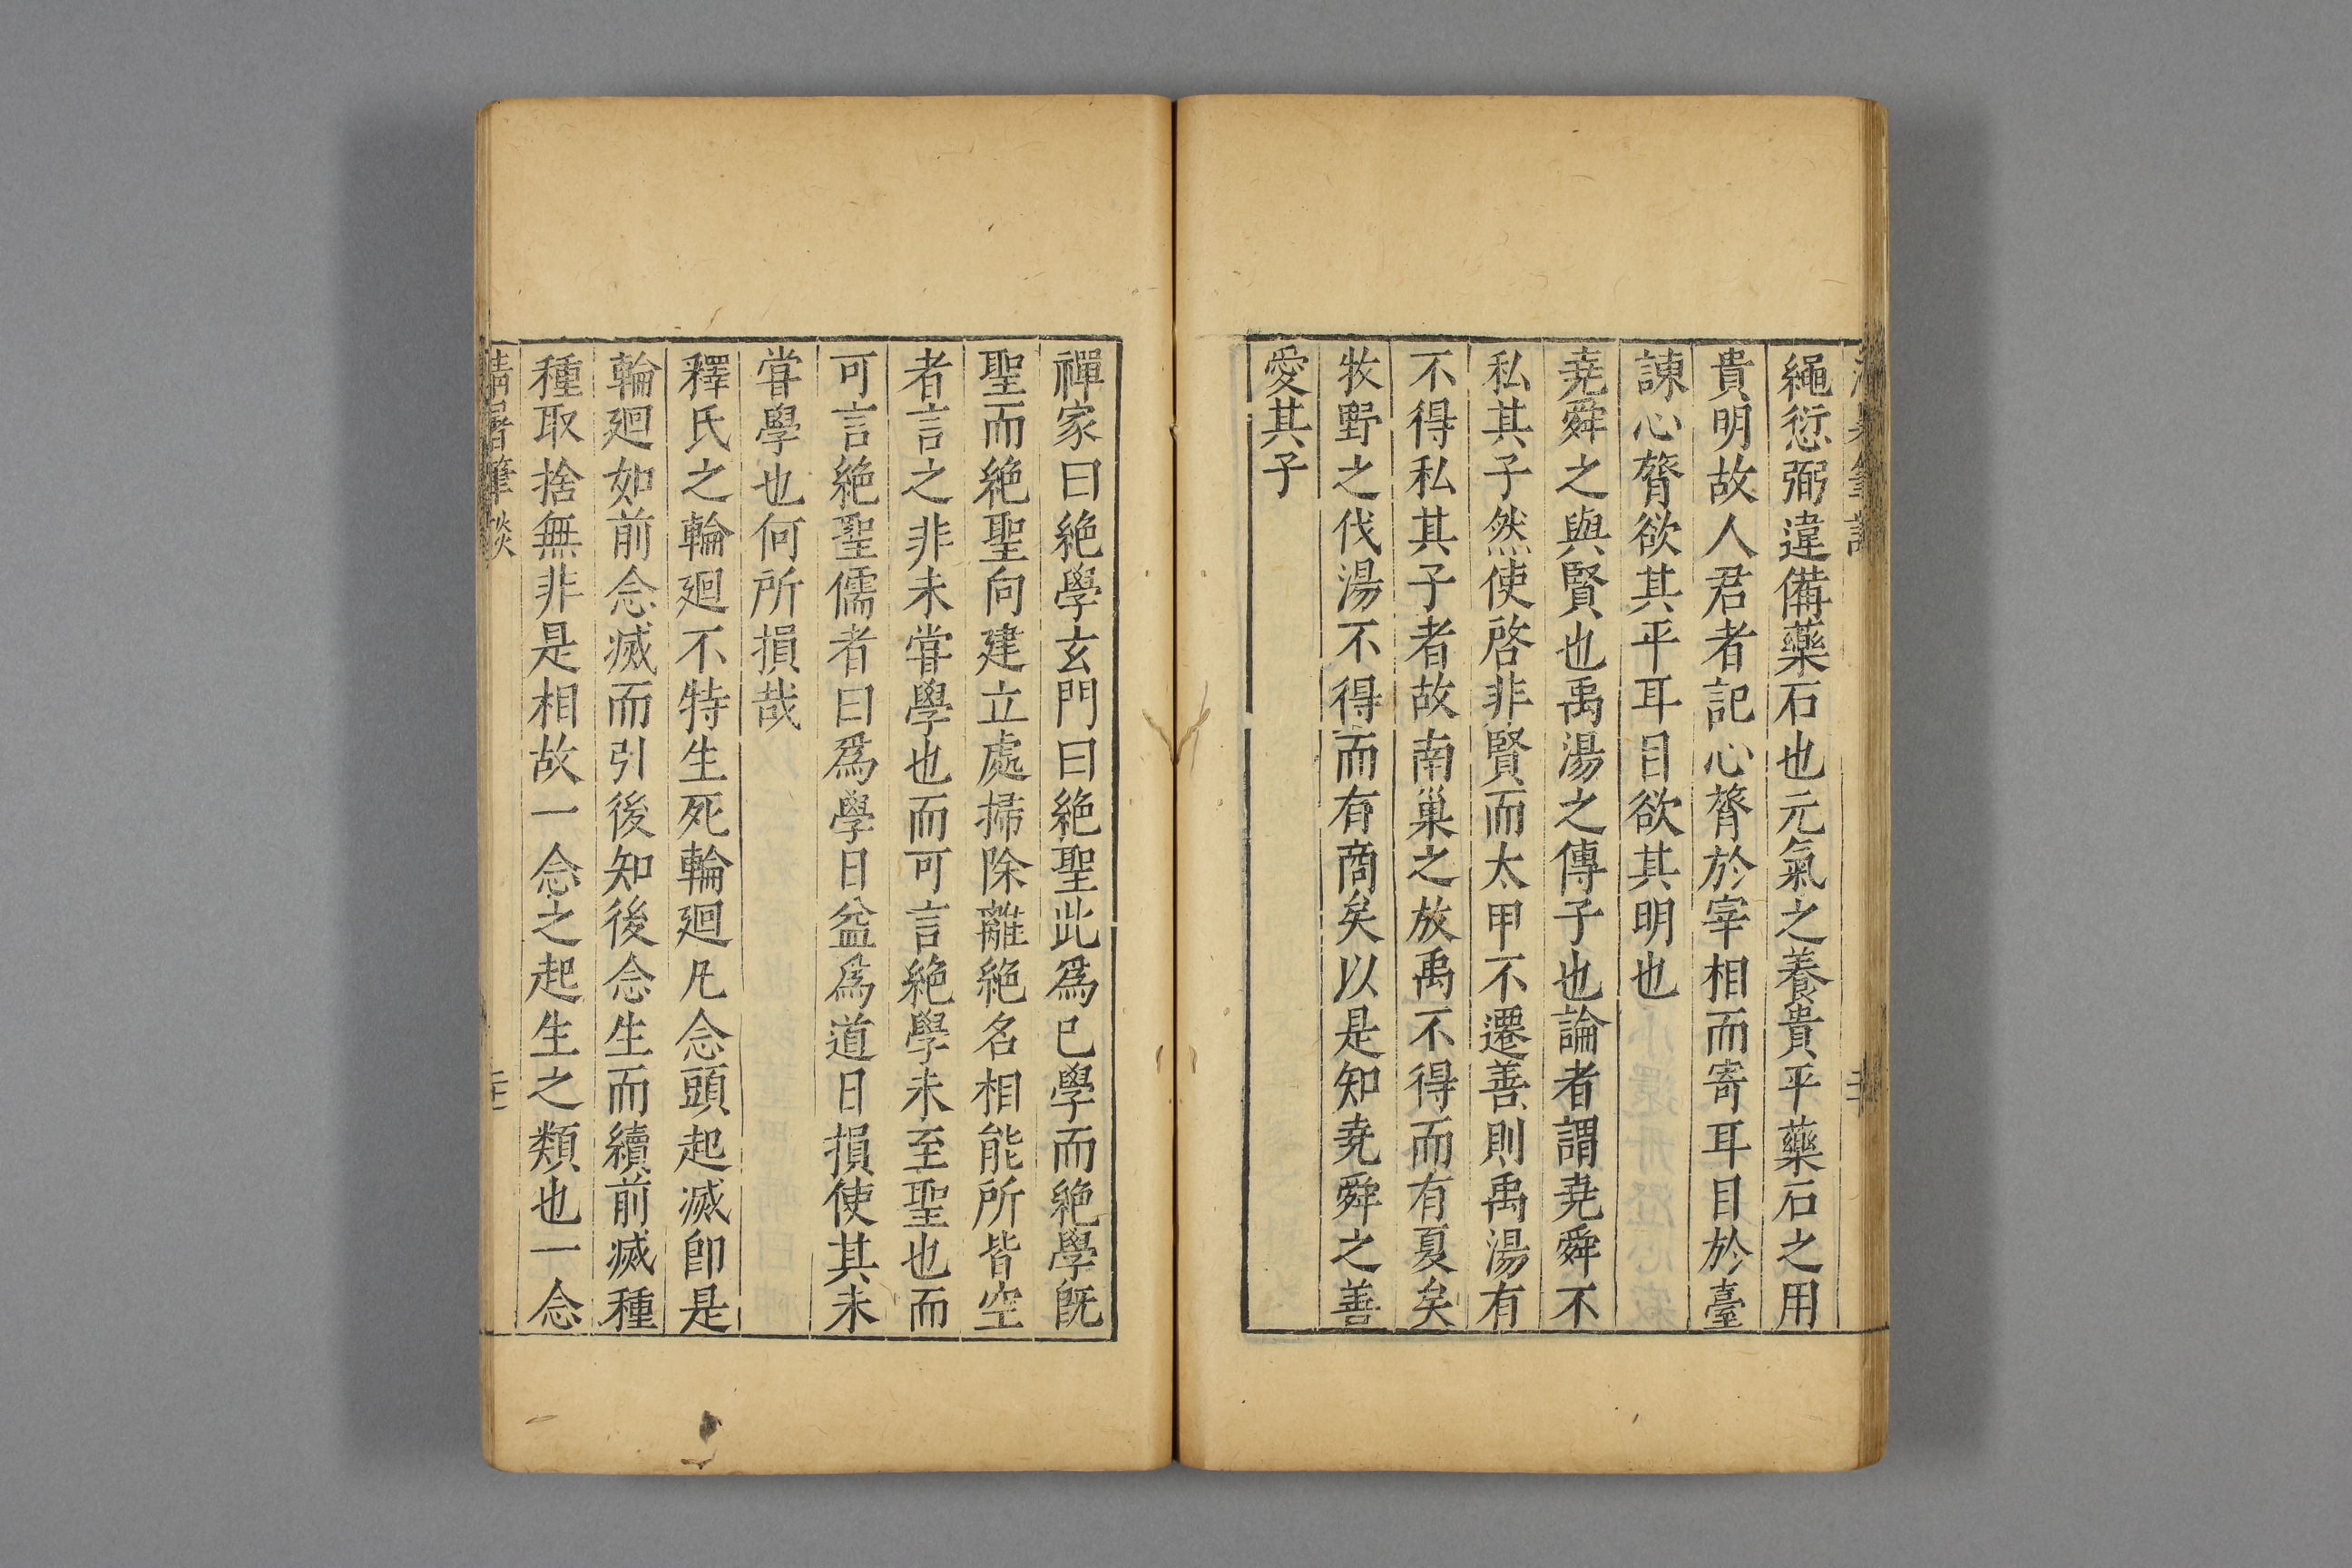 繩愆弼違備藥石也元氣之養貴平藥石之用
貴明故人君者記心膂於宰相而寄耳目於臺
諫心膂欲其平耳目欲其明也
堯舜之與賢也禹湯之傳子也論者謂堯舜不
私其子然使啓非賢而太甲不遷善則禹湯有
不得私其子者故南巢之放禹不得而有夏矣
牧野之伐湯不得而有商矣以是知堯舜之善
愛其子
禪家曰絶學玄門曰絶聖此爲已學而絶學旣
聖而絶聖向建立處掃除離絶名相能所皆空
者言之非未甞學也而可言絶學未至聖也而
可言絶聖儒者曰爲學日益爲道日損使其未
甞學也何所損哉
釋氏之輪廻不特生死輪廻凡念頭起滅卽是
輪廻如前念滅而引後知後念生而續前滅種
種取捨無非是相故一念之起生之類也一念
清暑筆談